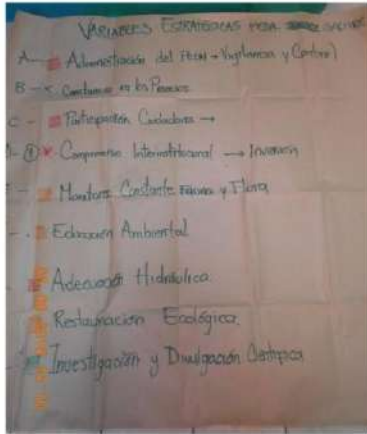 VARIABLES ESTRATEGICAS MESA
A - Administración del PECM → Vigilancia y Control
B - Constancia en los Procesos
C - Participación Ciudadana →
D - Compromiso Interinstitucional → Inversión
E - Monitoreo Constante Fauna y Flora
- Educación Ambiental
Adecuación Hidráulica
Restauración Ecológica.
Investigación y Divulgación Científica